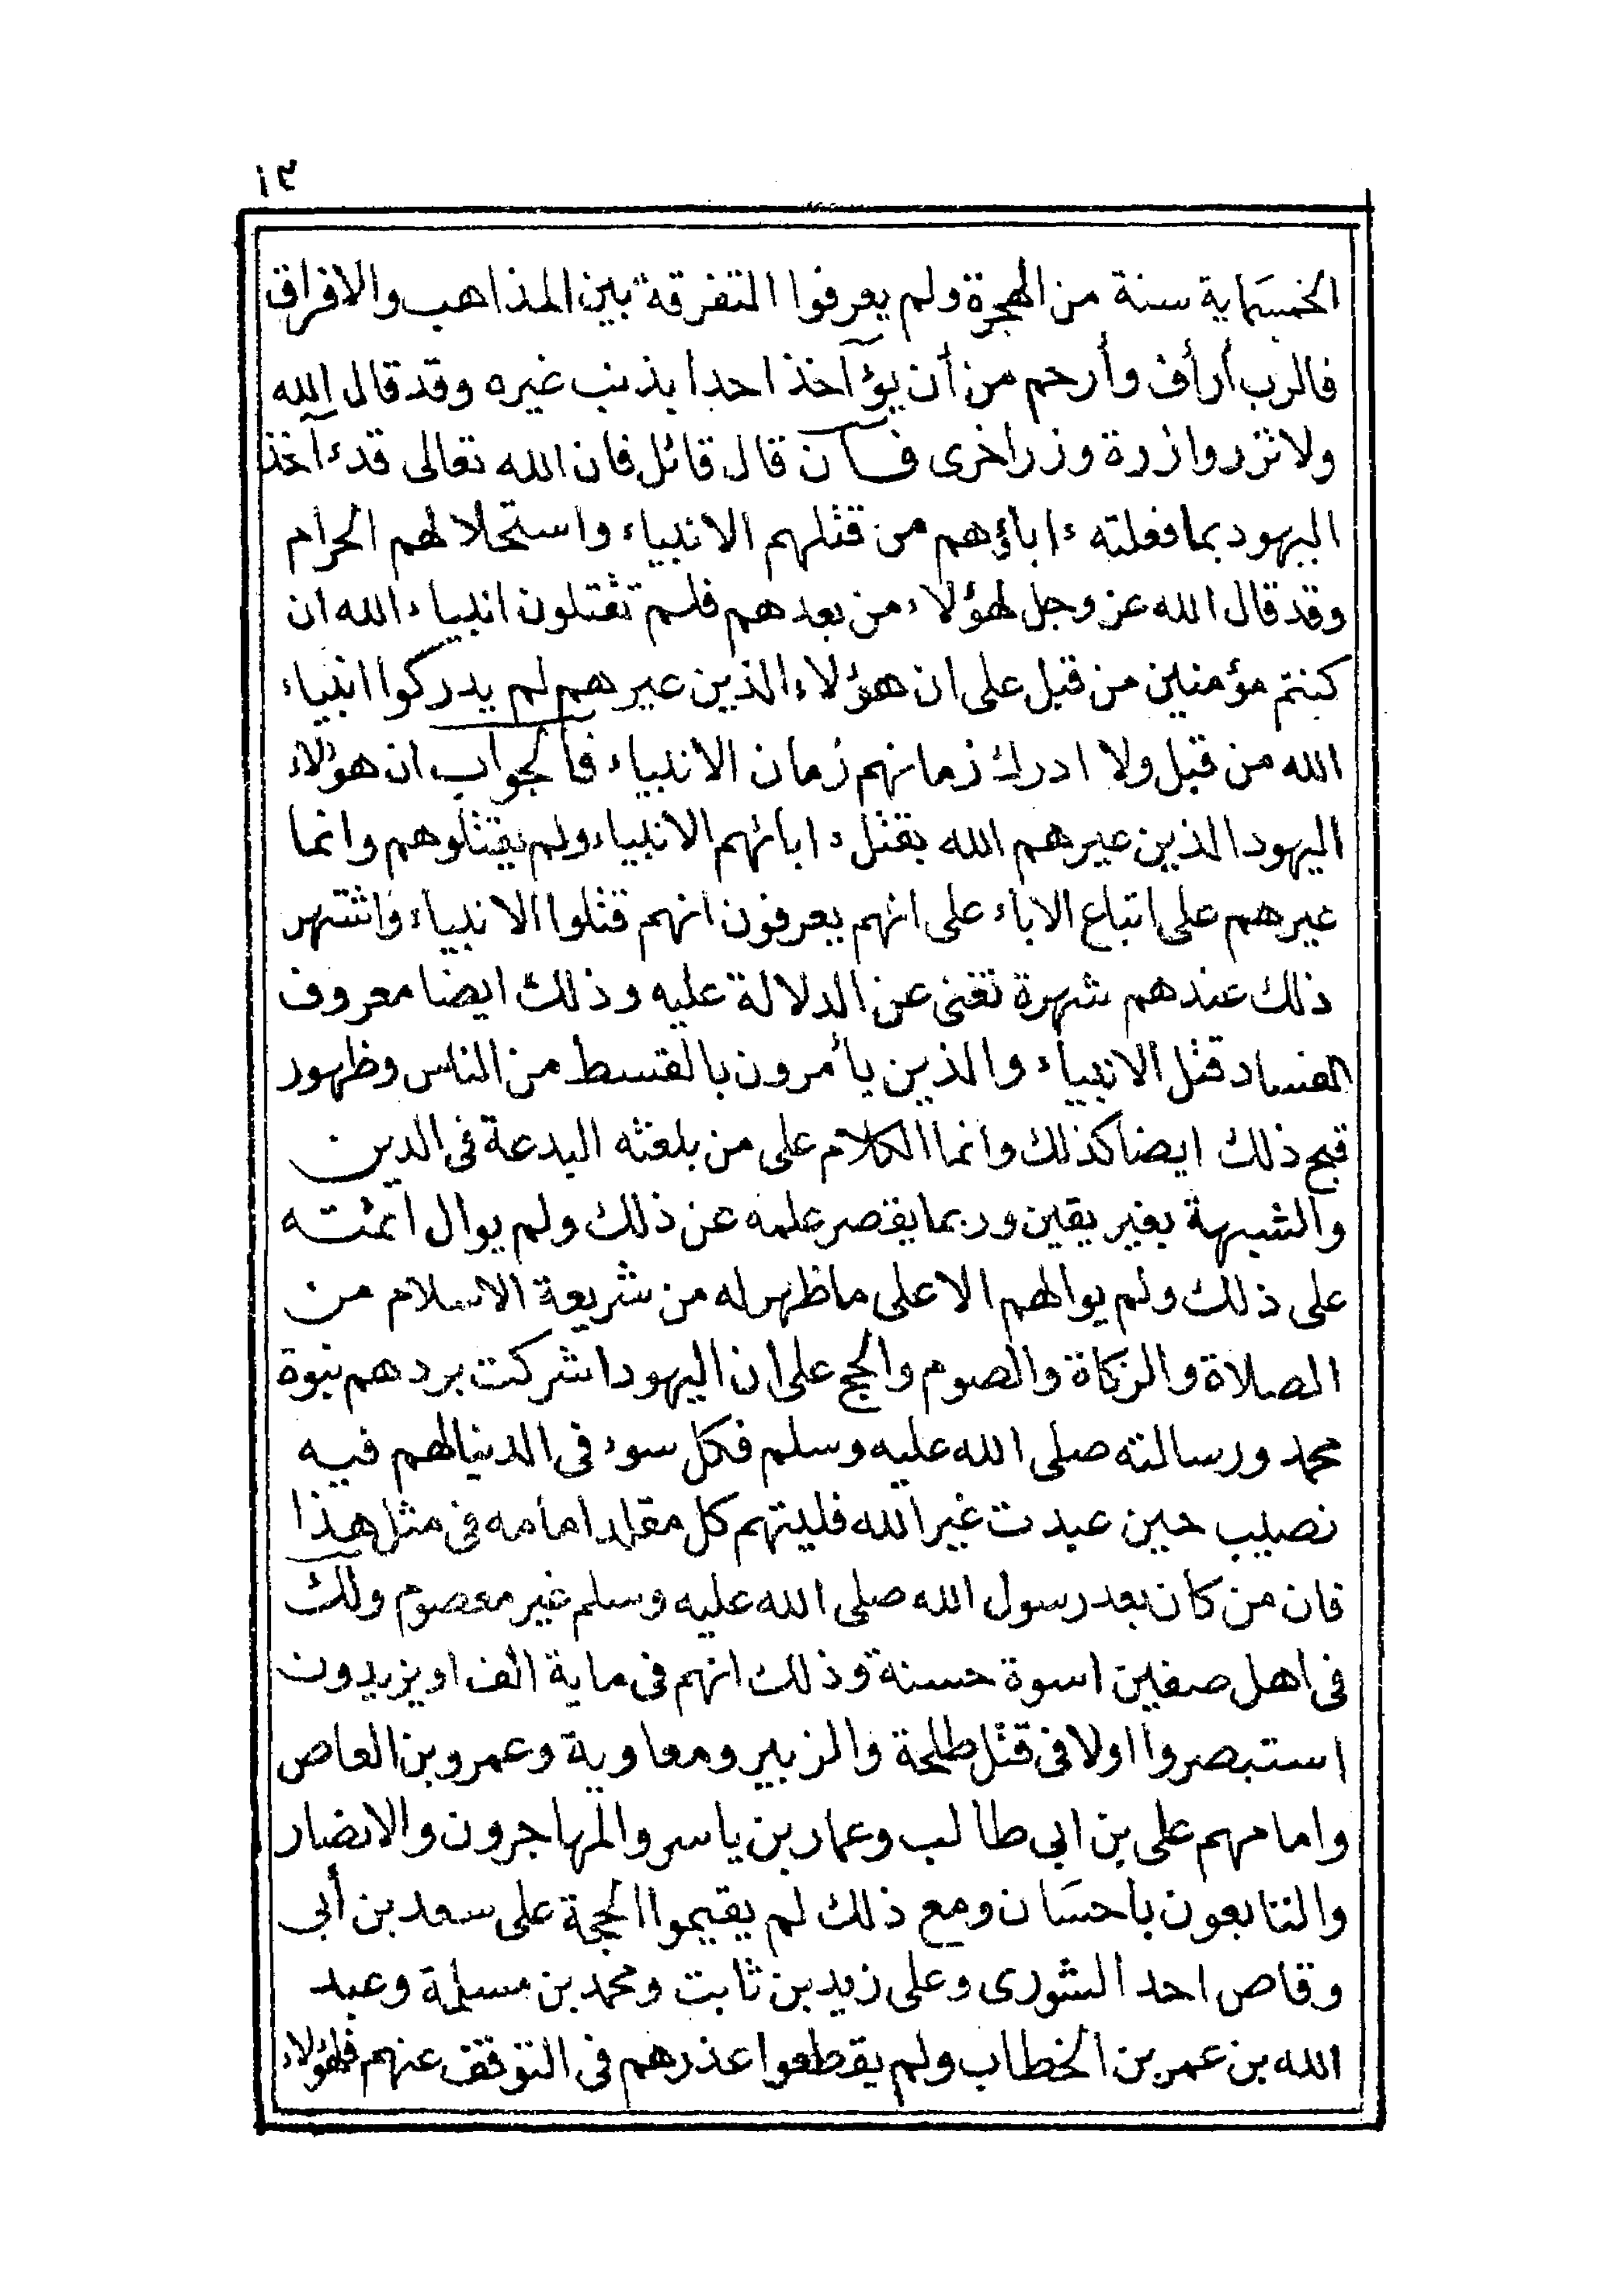 ١٣
الخمسماية سنة من الهجرة ولم يعرفوا التفرقة بين المذاهب والافراق
فالرب أرأف وأرحم من أن يؤآخذ احدا بذنب غيره وقد قال الله
ولا تزر وازرة وزر اخرى فــان قال قائل فان الله تعالى قد ءآخذ
اليهود بما فعلته ءاباؤهم من قتلهم الانبياء واستحلالهم الحرام
وقد قال الله عز وجل لهؤلاء من بعدهم فلم تقتلون انبياء الله ان
كنتم مؤمنين من قبل على ان هؤلاء الذين عيرهم لم يدركوا انبياء
الله من قبل ولا ادرك زمانهم زمان الانبياء فالجواب ان هؤلاء
اليهود الذين عيرهم الله بقتل ءابائهم الانبياء ولم يقتلوهم وانما
عيرهم على اتباع الاباء على انهم يعرفون انهم قتلوا الانبياء واشتهر
ذلك عندهم شهرة تغنى عن الدلالة عليه وذلك ايضا معروف
الفساد قتل الانبياء والذين يأمرون بالقسط من الناس وظهور
قبح ذلك ايضا كذلك وانما الكلام على من بلغته البدعة فى الدين
والشبهة بغير يقين وربما يقصر علمه عن ذلك ولم يوال ائمته
على ذلك ولم يوالهم الا على ما ظهر له من شريعة الاسلام من
الصلاة والزكاة والصوم والحج على ان اليهود اشركت بردهم نبوة
محمد ورسالته صلى الله عليه وسلم فكل سوء فى الدنيا لهم فيه
نصيب حين عبدت غير الله فليتهم كل مقلد امامه فى مثل هذا
فان من كان بعد رسول الله صلى الله عليه وسلم غير معصوم ولك
فى اهل صفين اسوة حسنة وذلك انهم فى ماية الف او يزيدون
استبصروا اولا فى قتل طلحة والزبير ومعاوية وعمرو بن العاص
وامامهم على بن ابي طالب وعمار بن ياسر والمهاجرون والانصار
والتابعون باحسان ومع ذلك لم يقيموا الحجة على سعد بن أبى
وقاص احد الشورى وعلى زيد بن ثابت ومحمد بن مسلمة وعبد
الله بن عمر بن الخطاب ولم يقطعوا عذرهم فى التوقف عنهم فلهؤلاء